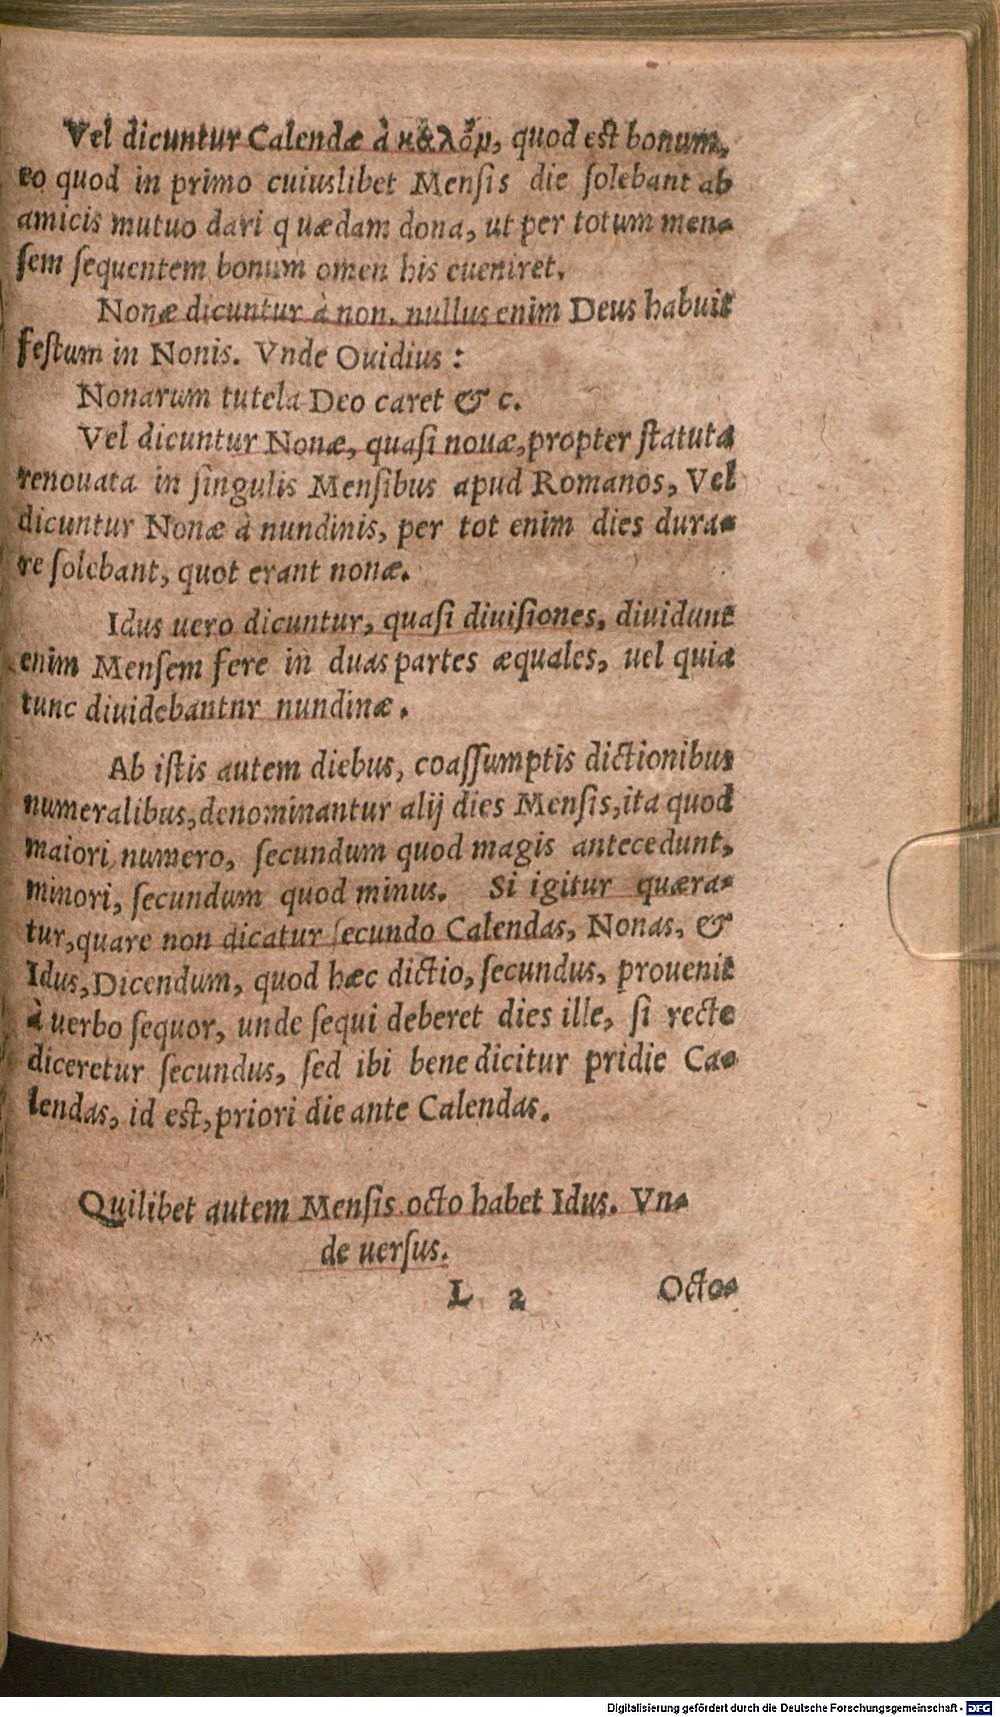 Vel dicuntur Calendæ à καλὸν, quod est bonum,
eo quod in primo cuiuslibet Mensis die solebant ab
amicis mutuo dari quædam dona, ut per totum men-
sem sequentem bonum omen his eueniret.
Nonæ dicuntur à non. nullus enim Deus habuit
festum in Nonis. Vnde Ouidius:
Nonarum tutela Deo caret & c.
Vel dicuntur Nonæ, quasi nouæ, propter statuta
renouata in singulis Mensibus apud Romanos, Vel
dicuntur Nonæ à nundinis, per tot enim dies dura-
re solebant, quot erant nonæ.
Idus uero dicuntur, quasi diuisiones, diuidunt
enim Mensem fere in duas partes æquales, uel quia
tunc diuidebantnr nundinæ.
Ab istis autem diebus, coassumptis dictionibus
numeralibus, denominantur alij dies Mensis, ita quod
maiori numero, secundum quod magis antecedunt,
minori, secundum quod minus. Si igitur quæra-
tur, quare non dicatur secundo Calendas, Nonas, &
Idus, Dicendum, quod hæc dictio, secundus, prouenit
à uerbo sequor, unde sequi deberet dies ille, si recte
diceretur secundus, sed ibi bene dicitur pridie Ca-
lendas, id est, priori die ante Calendas.
Quilibet autem Mensis octo habet Idus. Vn-
de uersus.
L 2 Octo-
Digitalisierung gefördert durch die Deutsche Forschungsgemeinschaft - DFG